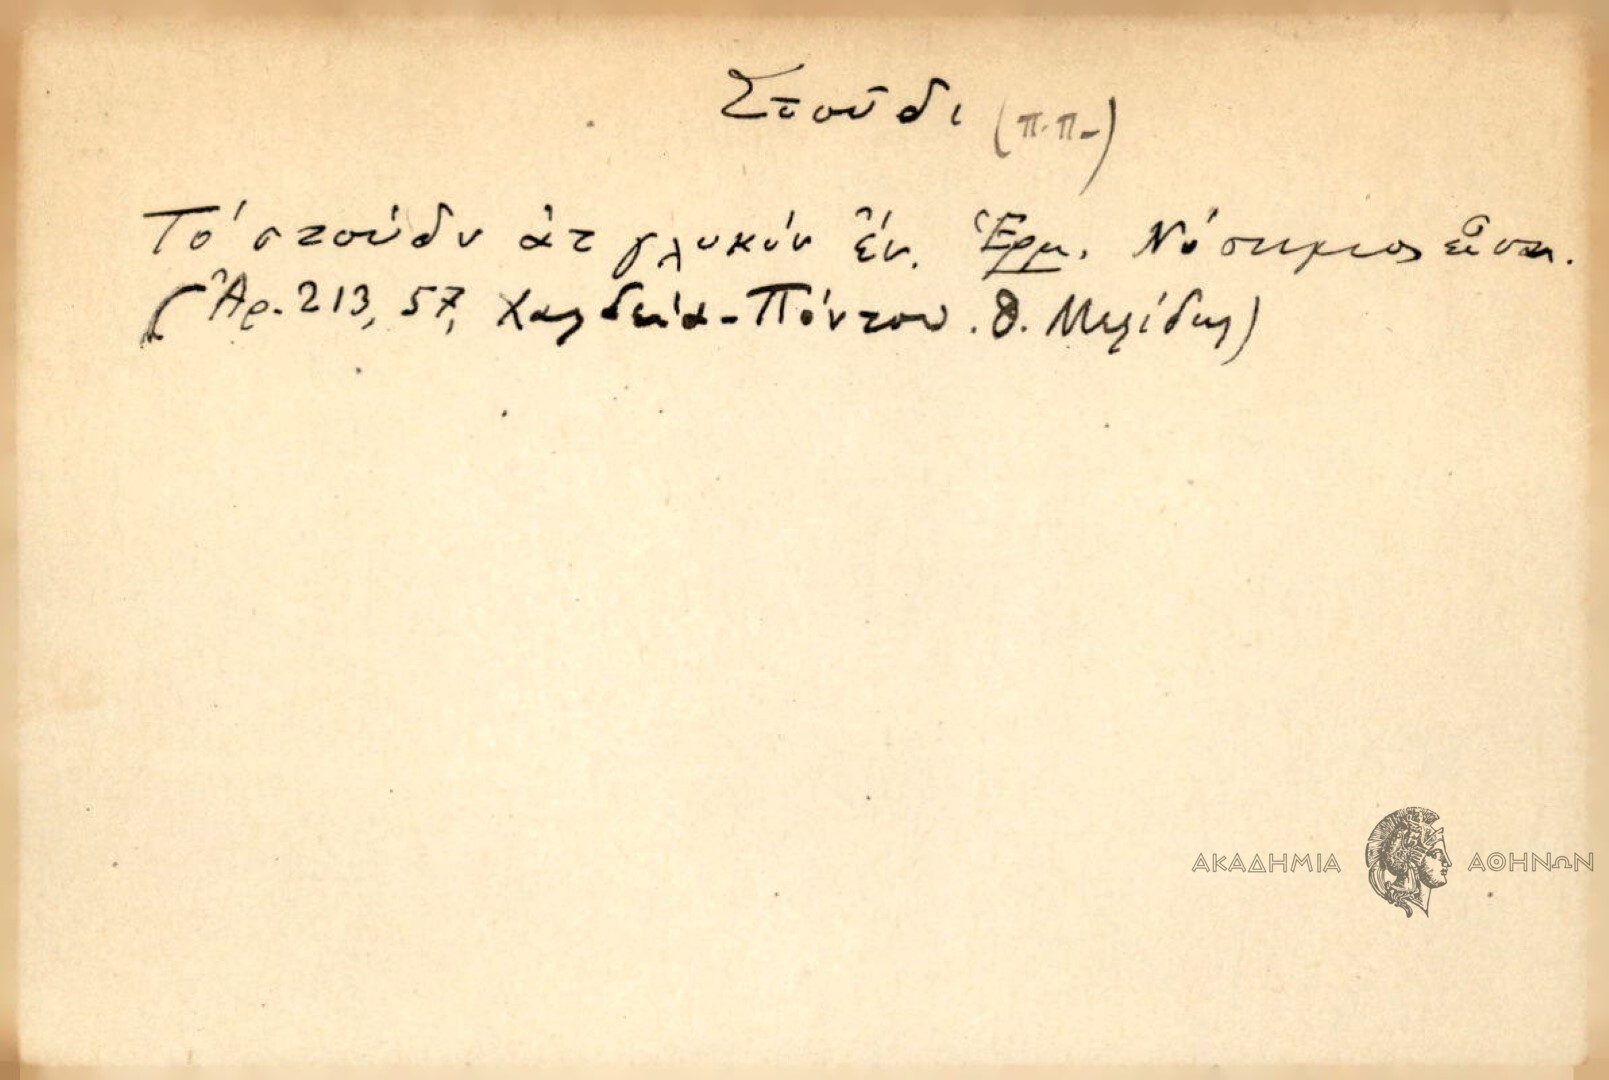 Στούδι (π.π.)
Τό στούδν ἀτ γλυκύν ἔν. Ἑρμ. Νόστιμος εἶναι.
(Ἀρ. 213, 57, Χαλδεία - Πόντου. Θ. Μελίδης)
ΑΚΑΔΗΜΙΑ ΑΘΗΝΩΝ